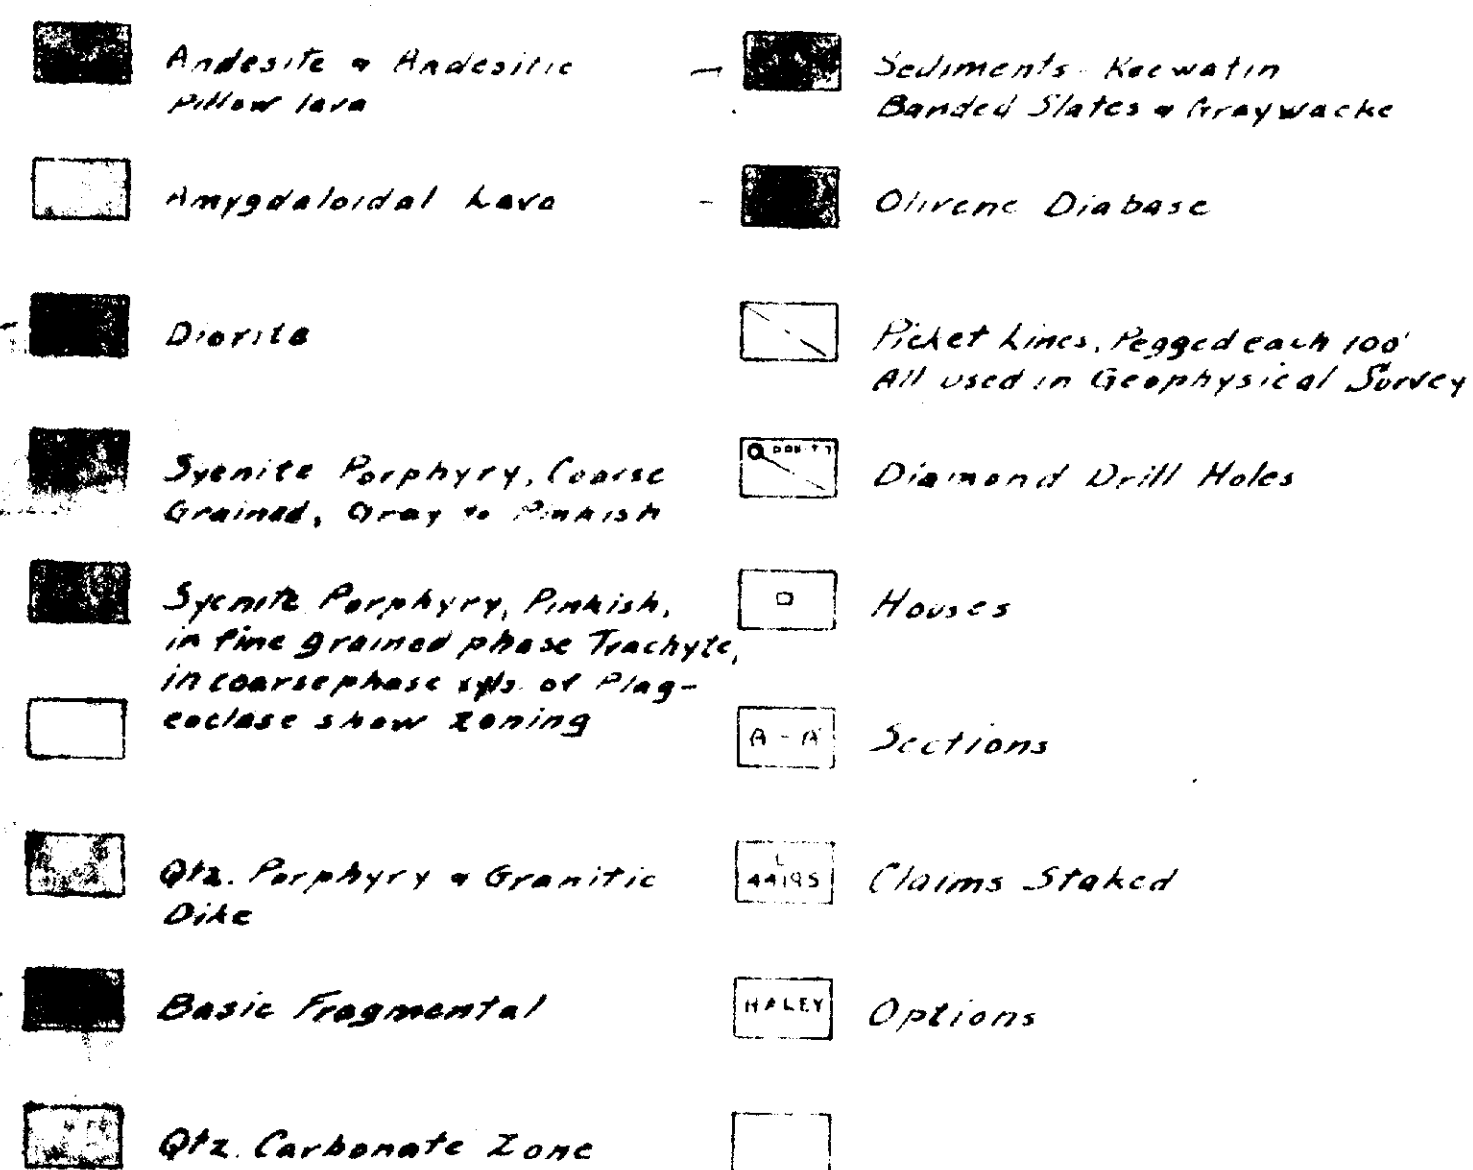 Andesite & Andesitic
Pillow lava
Amygdaloidal Lava
Diorite
Syenite Porphyry, Coarse
Grained, Gray to Pinkish
Syenite Porphyry, Pinkish,
in fine grained phase Trachyte,
in coarse phase xyls. of Plag-
eoclase show zoning
Qtz. Porphyry & Granitic
Dike
Basic Fragmental
Qtz. Carbonate Zone
Sediments - Keewatin
Banded Slates & Graywacke
Olivene Diabase
Picket Lines, Pegged each 100'
All used in Geophysical Survey
Diamond Drill Holes
Houses
A - A'
Sections
L
44195
Claims Staked
HALEY
Options